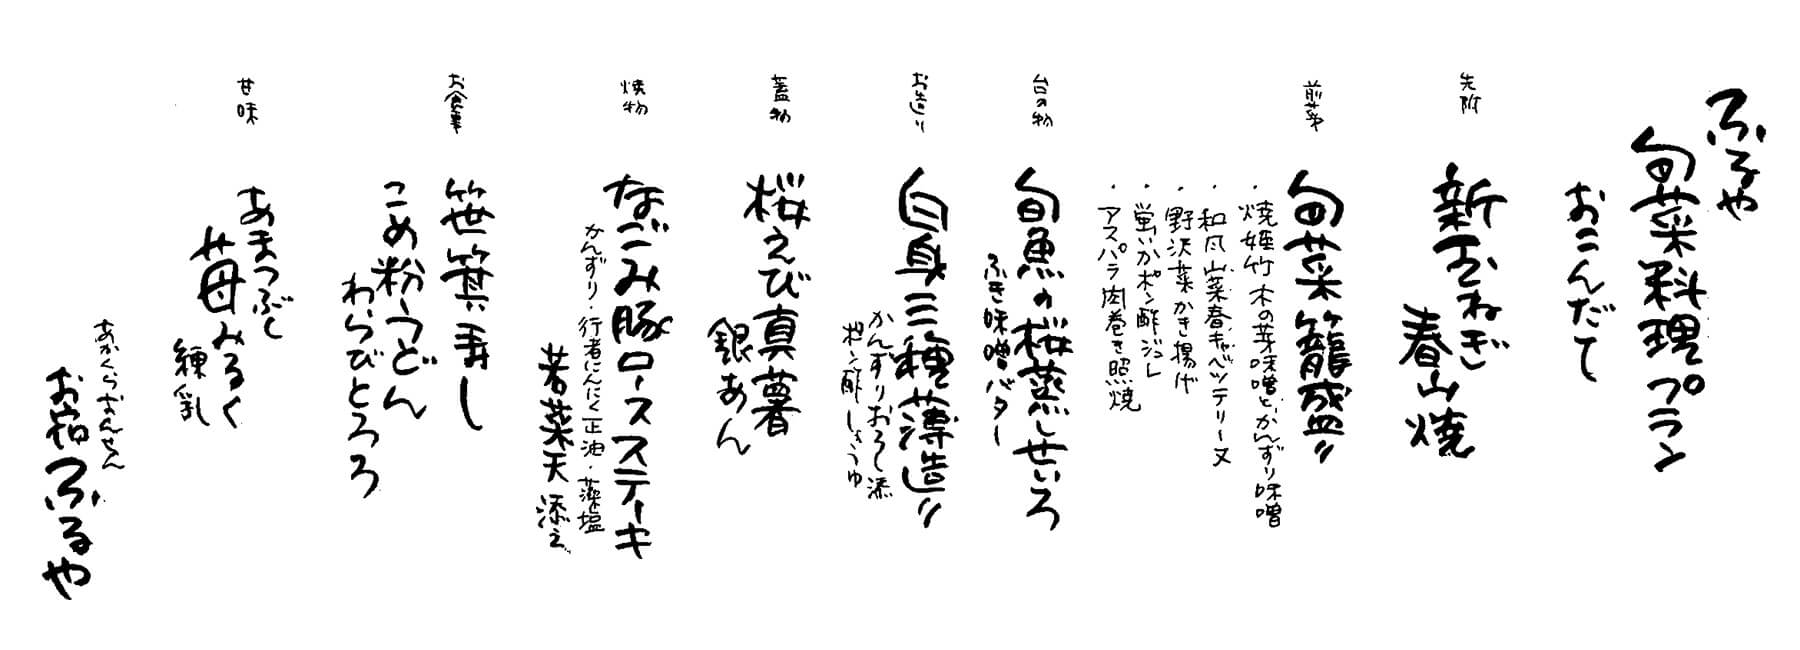 ふるや
旬菜料理プラン
おこんだて
先附
新玉ねぎ
春山焼
前菜
旬菜籠盛り
・焼姫竹 木の芽味噌とかんずり味噌
・和風山菜春キャベツテリーヌ
・野沢菜かき揚げ
・蛍いかポン酢ジュレ
・アスパラ肉巻き照焼
台の物
旬魚の桜蒸しせいろ
ふき味噌バター
お造り
白身三種薄造り
かんずりおろし添
ポン酢しょうゆ
蓋物
桜えび真薯
銀あん
焼物
なごみ豚ロースステーキ
かんずり・行者にんにく正油・藻塩
若菜天 添え
お食事
笹箕寿し
こめ粉うどん
わらびとろろ
甘味
あまつぶし
苺みるく
練乳
あかくらおんせん
お宿ふるや